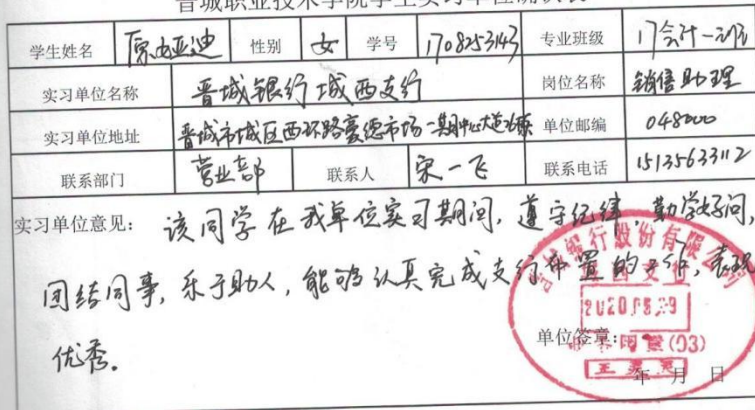 晋城职业技术学院学生实习单位确认表
学生姓名 原亚迪 性别 女 学号 1708253143 专业班级 17会计一
实习单位名称 晋城银行城西支行 岗位名称 销售助理
实习单位地址 晋城市城区西环路豪德市场二期中心大道 单位邮编 048000
联系部门 营业部 联系人 宋一飞 联系电话 15135633112
实习单位意见: 该同学在我单位实习期间,遵守纪律,勤学好问,
团结同事,乐于助人,能够认真完成支行布置的工作,表现
优秀。
银行股份有限公司
2020.05.29
单位签章:
(03)
年 月 日